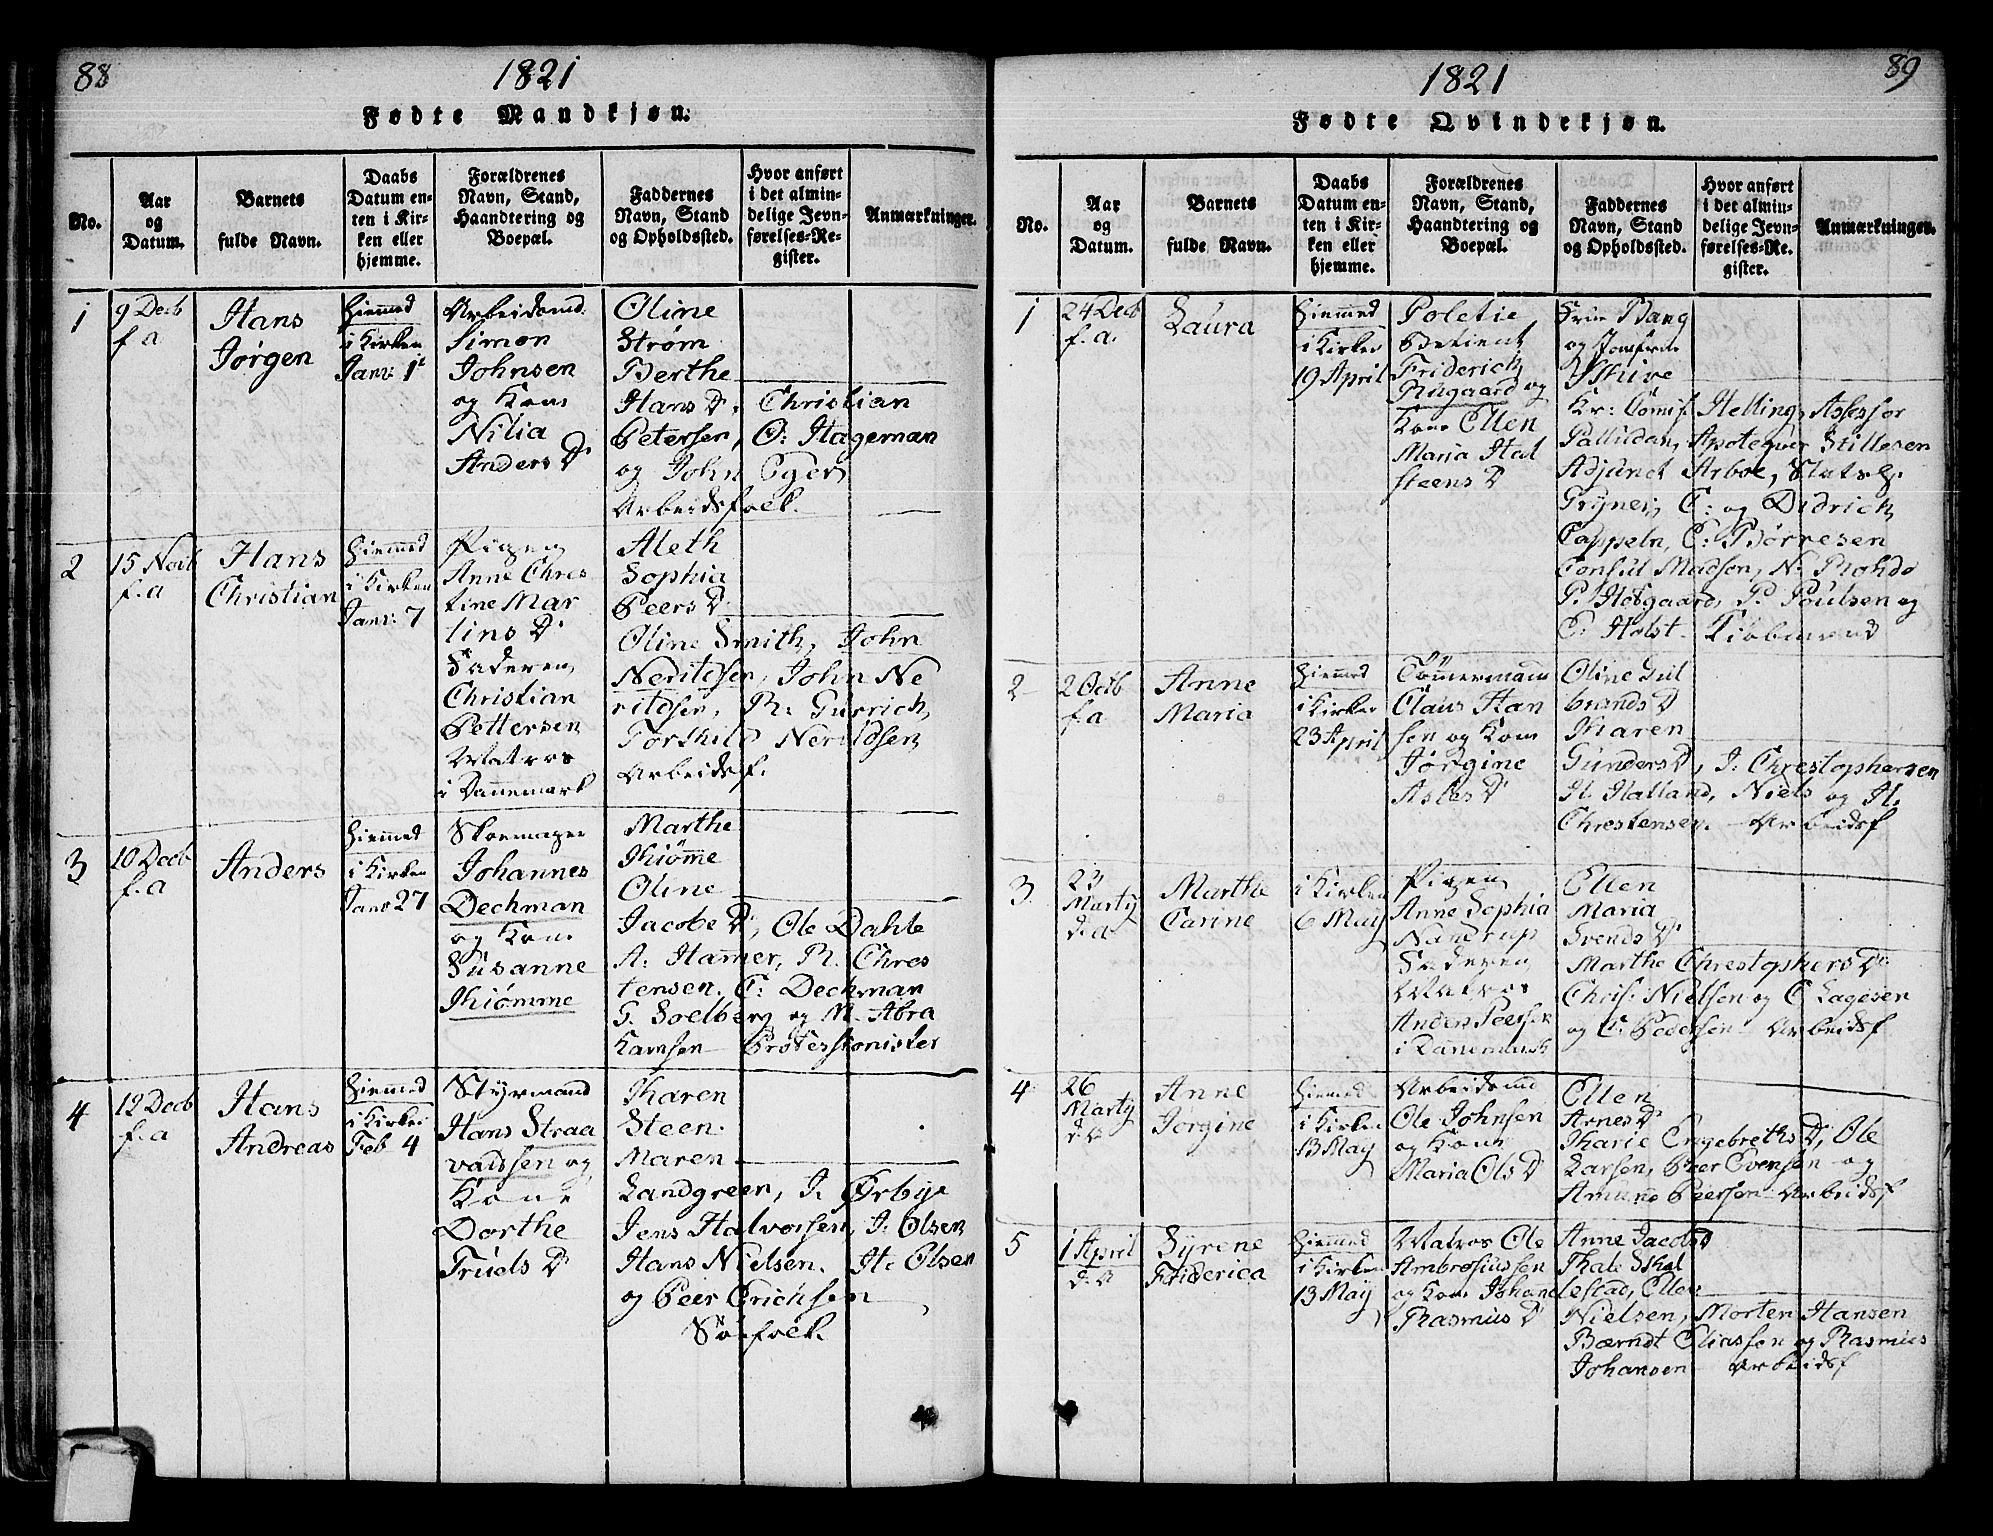 88
1821
Fødte Mandkjøn.
No.
Aar
og
Datum.
Barnets
fulde Navn.
Daabs
Datum en-
ten i Kir-
ken eller
hjemme.
Forældrenes
Navn, Stand,
Haandtering og
Boepæl.
Faddernes
Navn, Stand
og Opholdssted.
Hvor anført
i det almin-
delige Jevn-
førelses-Re-
gister.
Anmærkninger.
1
9 Decb
f. a
Hans
Jørgen
Hiemmed
i Kirken
Janv: 1t
Arbeidsmd.
Simon
Johnsen
og Kone
Nilia
Anders D
Oline
Strøm
Berthe
Hans D. Christian
Petersen, O: Hageman
og John Eger
Arbeidsfolk.
2
15 Novb
f. a
Hans
Christian
Hiemmed
i Kirken
Janv: 7
Pigen
Anne Chres
tine Mar
tins D
Faderen
Christian
Pettersen
Matros
i Dannemark
Aleth
Sophia
Peers D
Oline Smith, John
Nerildsen, John Ne
rildsen, R. Gurrich,
Torkild Nerildsen
Arbeidsf.
3
10 Decb
f. a
Anders
Hiemmed
i Kirken
Janv 27
Skoemager
Johannes
Dechman
og Kone
Susanne
Kiømme
Marthe
Kiømme
Oline
Jacobs D, Ole Dahle
A. Hammer, R. Chres
tensen. C: Dechman
G. Soelberg og N. Abra
hamsen Professionister
4
12 Decb
f. a
Hans
Andreas
Hiemmed
i Kirken
Feb 4
Styrmand
Hans Straa
valdsen og
Kone
Dorthe
Truels D
Karen
Steen.
Maren
Landgreen, J. Ørbye
Jens Halvorsen, J. Olsen
Hans Nielsen. H. Olsen
og Peer Erichsen
Søefolk.
89
1821
Fødte Qvindekjøn.
No.
Aar
og
Datum.
Barnets
fulde Navn.
Daabs
Datum en-
ten i Kir-
ken eller
hjemme.
Forældrenes
Navn, Stand,
Haandtering og
Boepæl.
Faddernes
Navn, Stand
og Opholdssted.
Hvor anført
i det almin-
delige Jevn-
førelses-Re-
gister.
Anmærkninger.
1
24 Decb
f. a.
Laura
Hiemmed
i Kirken
19 April
Poletie
Betient
Friderich
Rugaard og
Kone Ellen
Maria Hal
steens D
Frue Bang
og Jomfrue
Kr: Comis. Helling, Assessor
Palludan, Apoteqver Stillesen
Adjunct Arboe,
C: og Didrich
Cappeln, C. Børresen
Consul Madsen, N. Rohde
P. Hofgaard, P. Poulsen og
C. Holst.
2
2 Octb
f. a
Anne
Maria
Hiemmed
i Kirken
23 April
Tømmermand
Claus Han
sen og Kone
Jørgine
Asles D
Oline Gul
brands D
Karen
Gunders D, J. Chrestophersen
H. Halland, Niels og H.
Chrestensen. Arbeidsf
3
23
Marty
d. a
Marthe
Carine
i Kirken
6 May
Pigen
Anne Sophia
Nandrup
Faderen
Matros
Anders Peersen
i Dannemark
Ellen
Maria
Svends D
Marthe Chrestophers D
Chris: Nielsen og C Lagesen
og C. Pedersen Arbeidsf
4
26
Marty
d. a
Anne
Jørgine
Hiemmed
i Kirken
13 May
Arbeidsmd
Ole Johnsen
og Kone
Maria Ols D
Ellen
Arnes D
Karie Engebreths D, Ole
Larsen, Peer Evensen og
Amund Peersen Arbeidsf
5
1 April
d. a
Syrene
Friderica
Hiemmed
i Kirken
13 May
Matros Ole
Ambrosiussen
og Kone Johanne
Rasmus D
Anne Jacobs D
Thale Skal
lestad, Ellen
Nielsen, Morten Hansen
Bærndt Eliassen og Rasmus
Johansen Arbeidsf